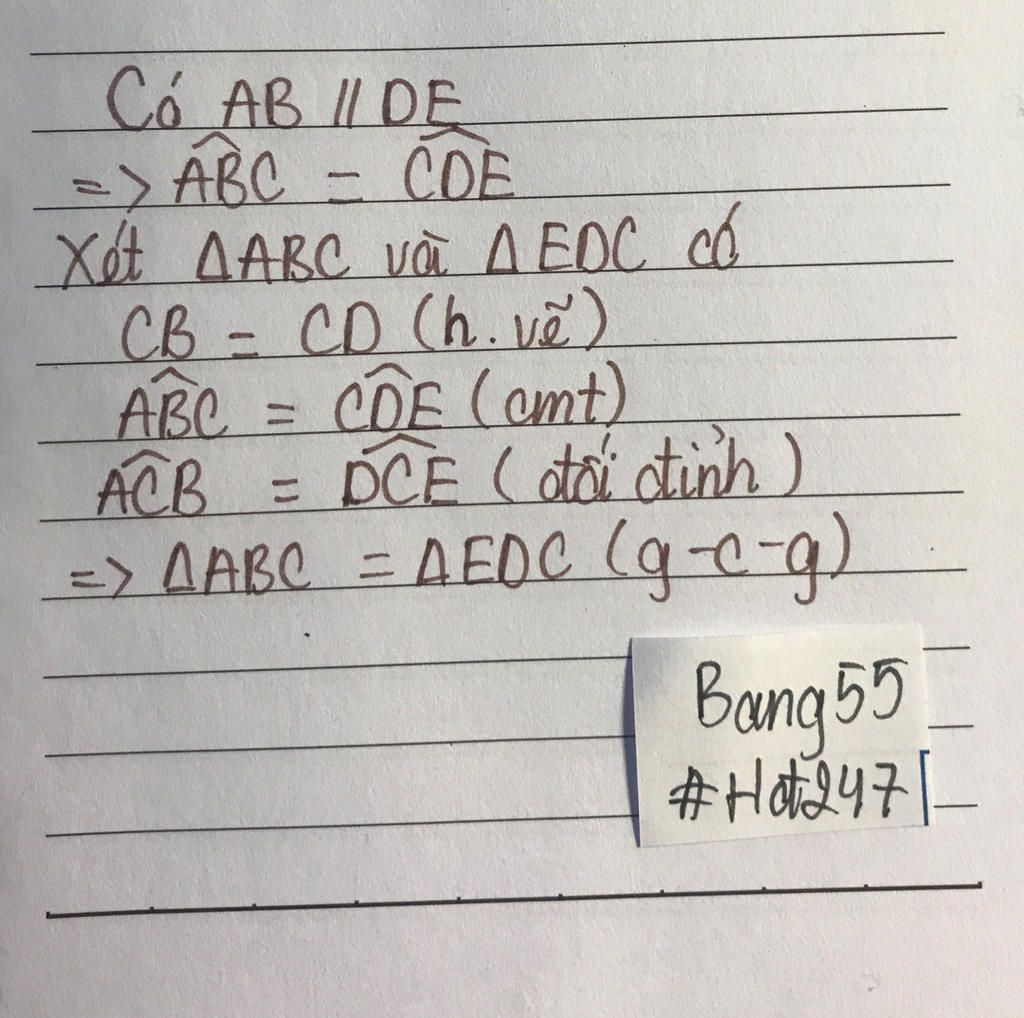 Có AB // DE
=> \widehat{ABC} = \widehat{CDE}
Xét ΔABC và ΔEDC có
CB = CD (h. vẽ)
\widehat{ABC} = \widehat{CDE} (cmt)
\widehat{ACB} = \widehat{DCE} (đối đỉnh)
=> ΔABC = ΔEDC (g-c-g)
Bang55
#Hđ247